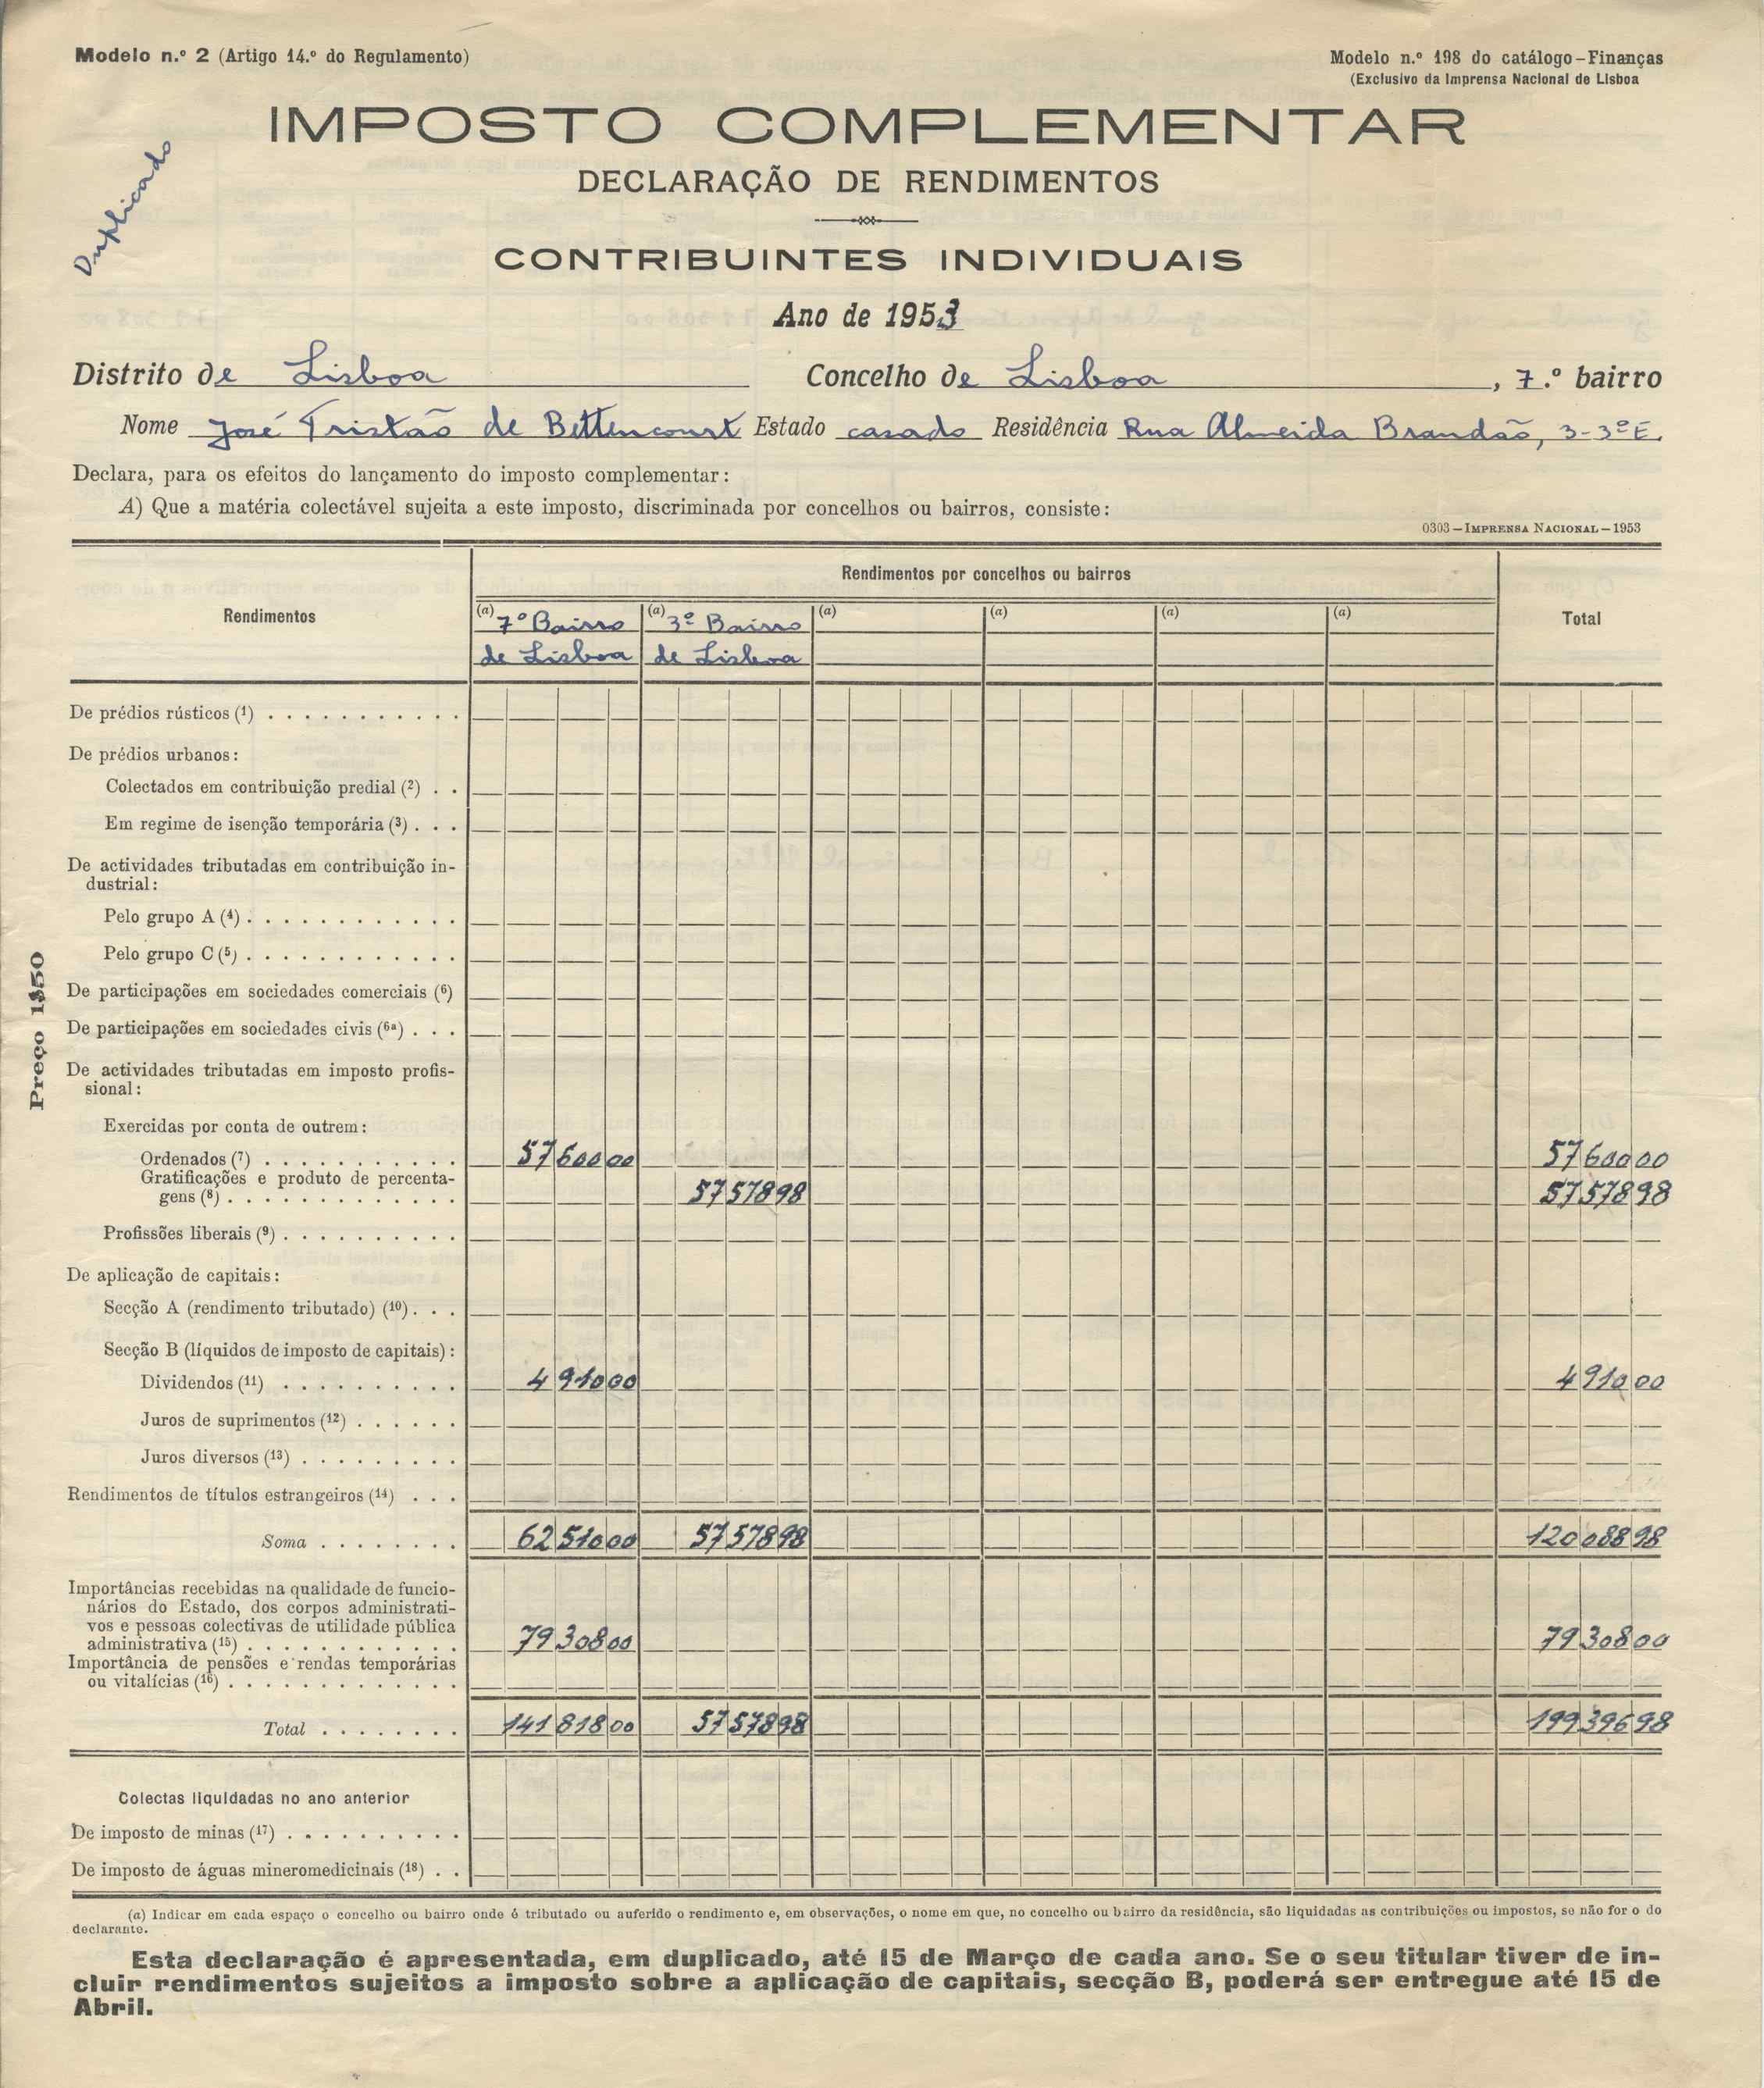 Modelo n.º 2 (Artigo 14.º do Regulamento)
Modelo n.º 198 do catálogo – Finanças
(Exclusivo da Imprensa Nacional de Lisboa
Duplicado
IMPOSTO COMPLEMENTAR
DECLARAÇÃO DE RENDIMENTOS
CONTRIBUINTES INDIVIDUAIS
Ano de 1953
Distrito de Lisboa Concelho de Lisboa, 7.º bairro
Nome José Tristão de Bettencourt Estado casado Residência Rua Almeida Brandão, 3-3º E.
Declara, para os efeitos do lançamento do imposto complementar:
A) Que a matéria colectável sujeita a este imposto, discriminada por concelhos ou bairros, consiste:
0303 – IMPRENSA NACIONAL – 1953
Rendimentos por concelhos ou bairros
Rendimentos (a) 7º Bairro (a) 3º Bairro (a) (a) (a) (a) Total
de Lisboa de Lisboa
De prédios rústicos (1)
De prédios urbanos:
Colectados em contribuição predial (2)
Em regime de isenção temporária (3)
De actividades tributadas em contribuição in-
dustrial:
Pelo grupo A (4)
Pelo grupo C (5)
De participações em sociedades comerciais (6)
De participações em sociedades civis (6a)
De actividades tributadas em imposto profis-
sional:
Exercidas por conta de outrem:
Ordenados (7) 57 600 00 57 600 00
Gratificações e produto de percenta-
gens (8) 57 578 98 57 578 98
Profissões liberais (9)
De aplicação de capitais:
Secção A (rendimento tributado) (10)
Secção B (líquidos de imposto de capitais):
Dividendos (11) 4 910 00 4 910 00
Juros de suprimentos (12)
Juros diversos (13)
Rendimentos de títulos estrangeiros (14)
Soma 62 510 00 57 578 98 120 088 98
Importâncias recebidas na qualidade de funcio-
nários do Estado, dos corpos administrati-
vos e pessoas colectivas de utilidade pública
administrativa (15) 79 308 00 79 308 00
Importância de pensões e rendas temporárias
ou vitalícias (16)
Total 141 818 00 57 578 98 199 396 98
Colectas liquidadas no ano anterior
De imposto de minas (17)
De imposto de águas mineromedicinais (18)
Preço 1$50
(a) Indicar em cada espaço o concelho ou bairro onde é tributado ou auferido o rendimento e, em observações, o nome em que, no concelho ou bairro da residência, são liquidadas as contribuições ou impostos, se não for o do
declarante.
Esta declaração é apresentada, em duplicado, até 15 de Março de cada ano. Se o seu titular tiver de in-
cluir rendimentos sujeitos a imposto sobre a aplicação de capitais, secção B, poderá ser entregue até 15 de
Abril.